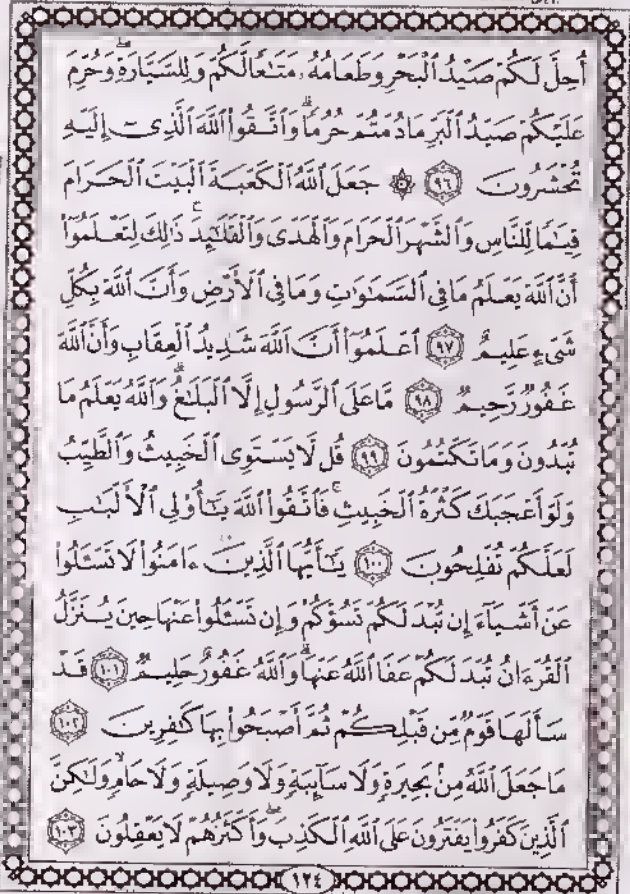 أُحِلَّ لَكُمْ صَيْدُ ٱلْبَحْرِ وَطَعَامُهُۥ مَتَـٰعًا لَّكُمْ وَلِلسَّيَّارَةِۖ وَحُرِّمَ
عَلَيْكُمْ صَيْدُ ٱلْبَرِّ مَا دُمْتُمْ حُرُمًاۗ وَٱتَّقُوا۟ ٱللَّهَ ٱلَّذِىٓ إِلَيْهِ
تُحْشَرُونَ ٩٦ ۞ جَعَلَ ٱللَّهُ ٱلْكَعْبَةَ ٱلْبَيْتَ ٱلْحَرَامَ
قِيَـٰمًا لِّلنَّاسِ وَٱلشَّهْرَ ٱلْحَرَامَ وَٱلْهَدْىَ وَٱلْقَلَـٰٓئِدَۚ ذَٰلِكَ لِتَعْلَمُوٓا۟
أَنَّ ٱللَّهَ يَعْلَمُ مَا فِى ٱلسَّمَـٰوَٰتِ وَمَا فِى ٱلْأَرْضِ وَأَنَّ ٱللَّهَ بِكُلِّ
شَىْءٍ عَلِيمٌ ٩٧ ٱعْلَمُوٓا۟ أَنَّ ٱللَّهَ شَدِيدُ ٱلْعِقَابِ وَأَنَّ ٱللَّهَ
غَفُورٌ رَّحِيمٌ ٩٨ مَّا عَلَى ٱلرَّسُولِ إِلَّا ٱلْبَلَـٰغُۗ وَٱللَّهُ يَعْلَمُ مَا
تُبْدُونَ وَمَا تَكْتُمُونَ ٩٩ قُل لَّا يَسْتَوِى ٱلْخَبِيثُ وَٱلطَّيِّبُ
وَلَوْ أَعْجَبَكَ كَثْرَةُ ٱلْخَبِيثِۚ فَٱتَّقُوا۟ ٱللَّهَ يَـٰٓأُو۟لِى ٱلْأَلْبَـٰبِ
لَعَلَّكُمْ تُفْلِحُونَ ١٠٠ يَـٰٓأَيُّهَا ٱلَّذِينَ ءَامَنُوا۟ لَا تَسْـَٔلُوا۟
عَنْ أَشْيَآءَ إِن تُبْدَ لَكُمْ تَسُؤْكُمْ وَإِن تَسْـَٔلُوا۟ عَنْهَا حِينَ يُنَزَّلُ
ٱلْقُرْءَانُ تُبْدَ لَكُمْ عَفَا ٱللَّهُ عَنْهَاۗ وَٱللَّهُ غَفُورٌ حَلِيمٌ ١٠١ قَدْ
سَأَلَهَا قَوْمٌ مِّن قَبْلِكُمْ ثُمَّ أَصْبَحُوا۟ بِهَا كَـٰفِرِينَ ١٠٢
مَا جَعَلَ ٱللَّهُ مِنۢ بَحِيرَةٍ وَلَا سَآئِبَةٍ وَلَا وَصِيلَةٍ وَلَا حَامٍۙ وَلَـٰكِنَّ
ٱلَّذِينَ كَفَرُوا۟ يَفْتَرُونَ عَلَى ٱللَّهِ ٱلْكَذِبَۖ وَأَكْثَرُهُمْ لَا يَعْقِلُونَ ١٠٣
١٢٤